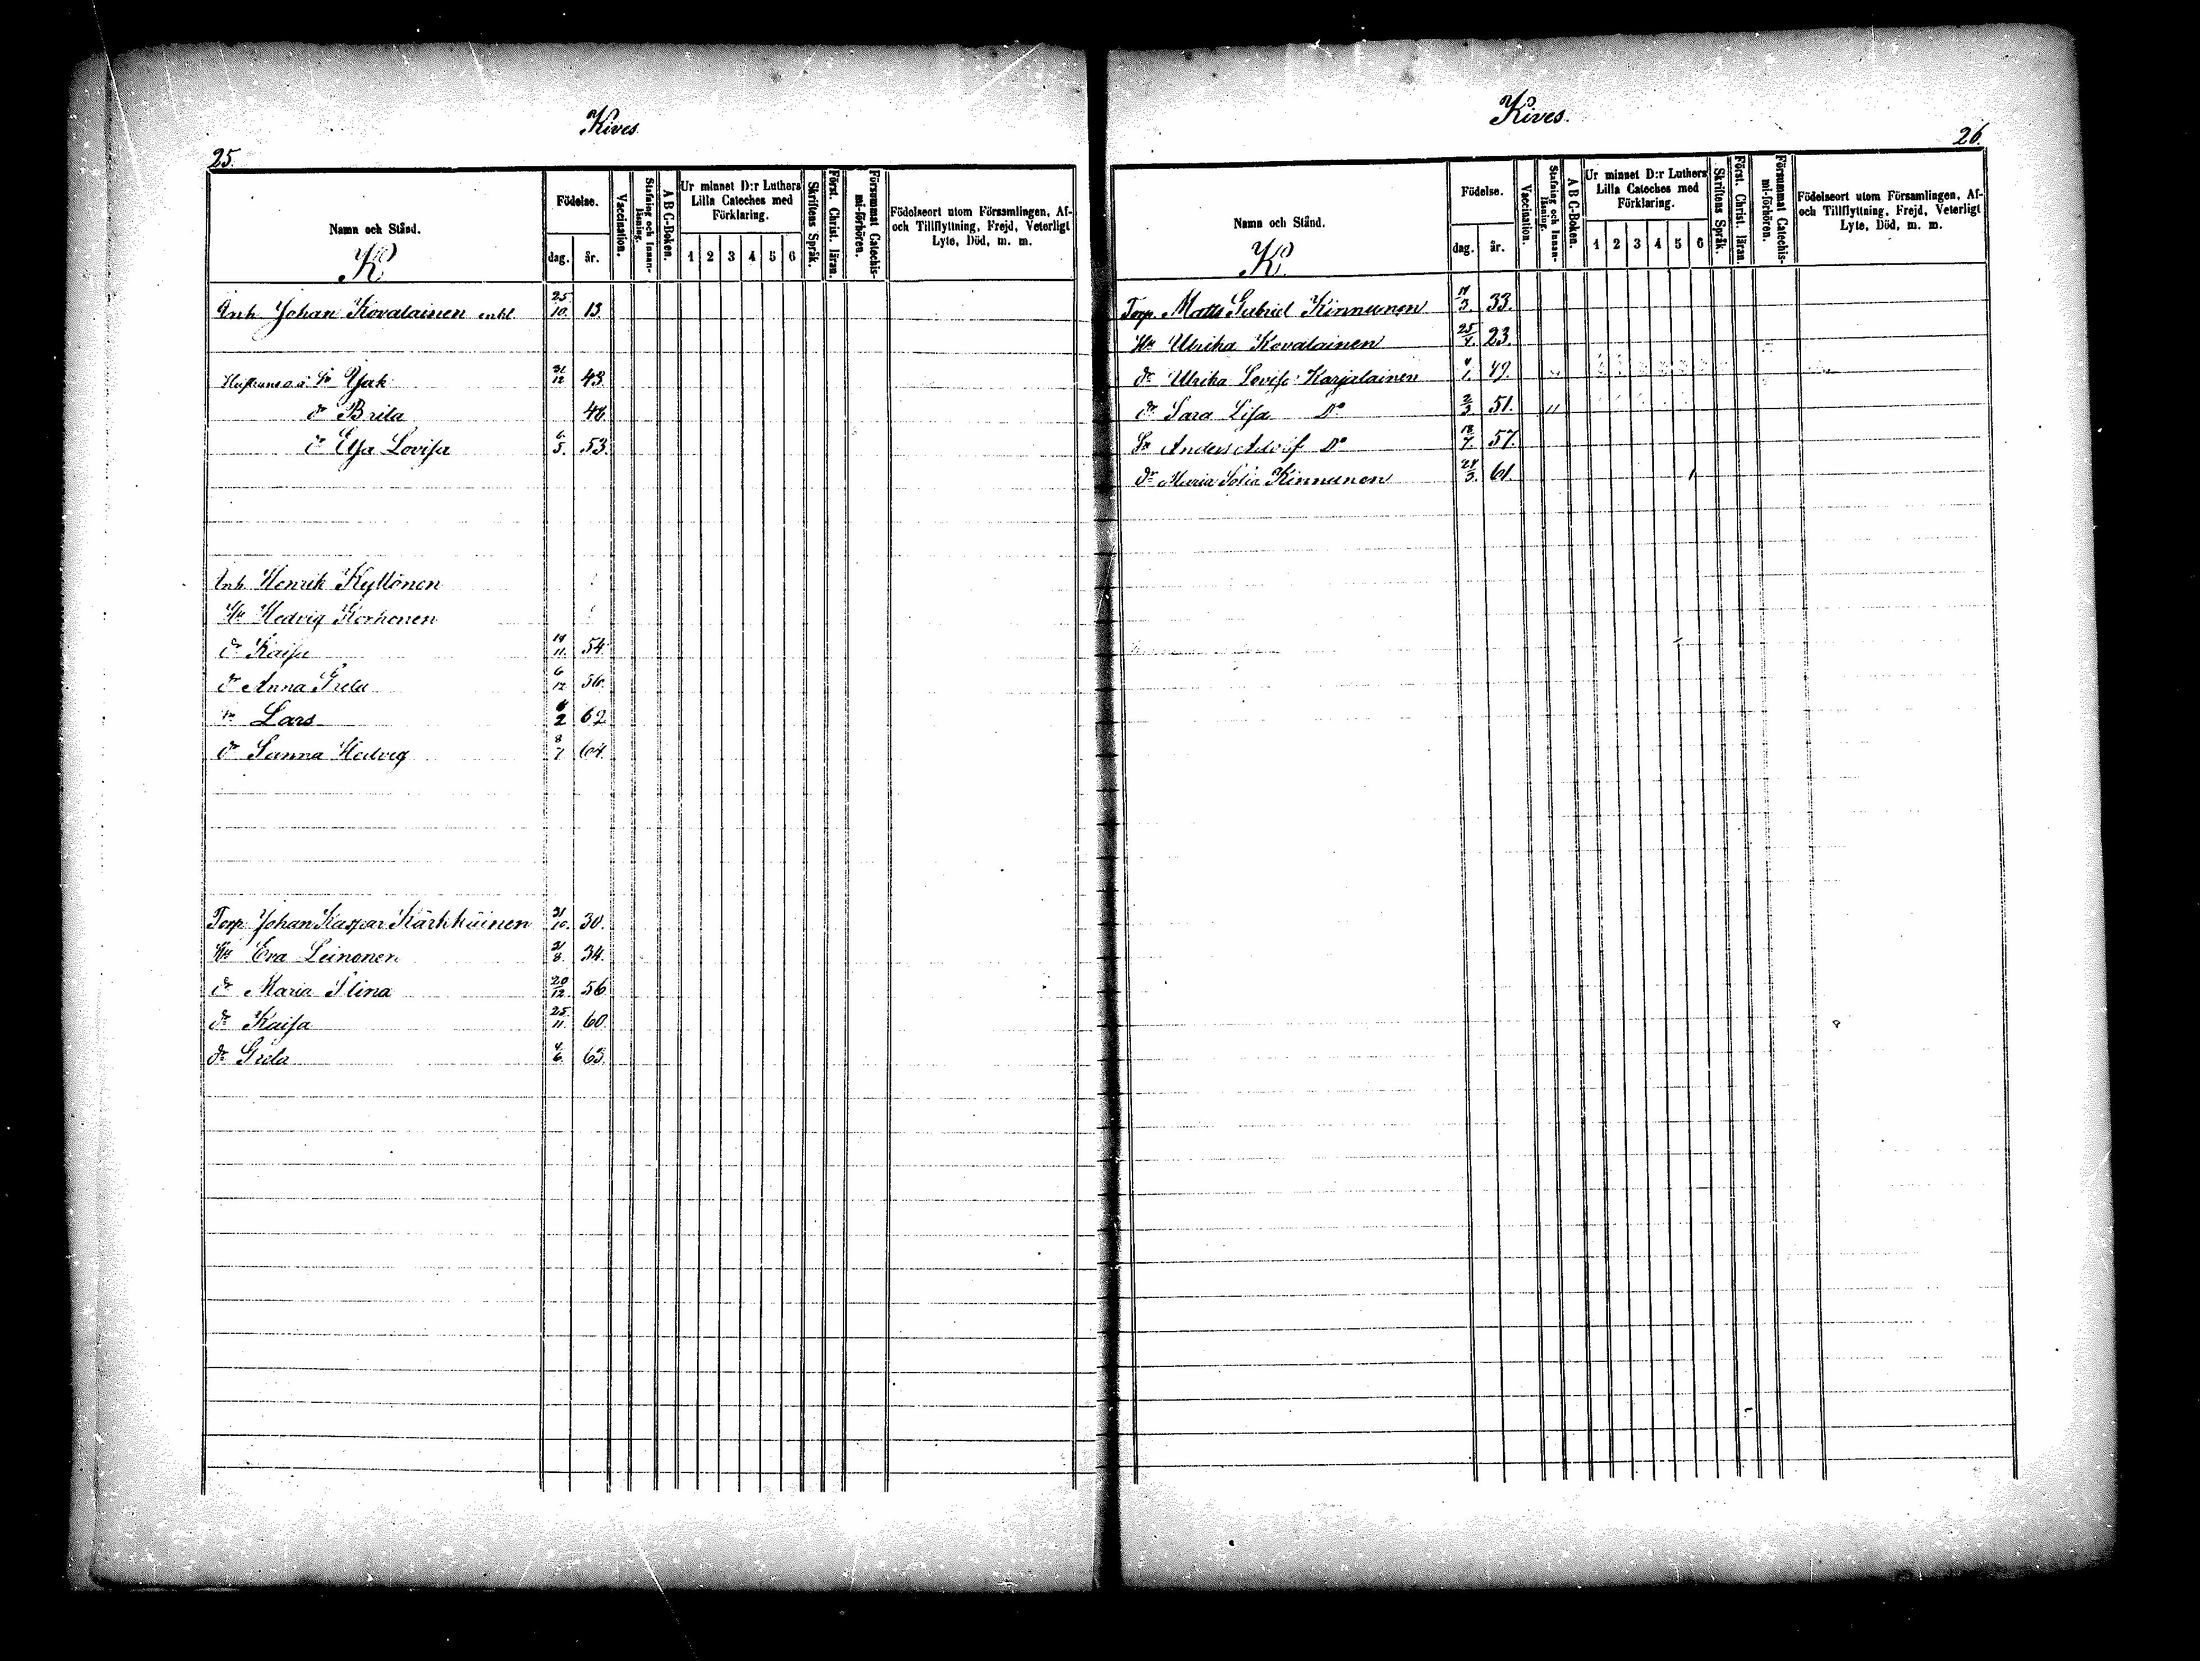 Kives.
25.
Namn och Stånd.
K
Födelse.
dag. år.
Vaccination.
Stafning och Innanläsning.
A B C-Boken.
Ur minnet D:r Luthers Lilla Cateches med Förklaring.
1 2 3 4 5 6
Skriftens Språk.
Först. Christ. läran.
Försummat Catechismi-förhören.
Födelseort utom Församlingen, Af- och Tillflyttning, Frejd, Veterligt Lyte, Död, m. m.
Inh. Johan Kovalainen enkl 25/10. 13
Sn Isak 31/12 43.
dr Brita
dr Elsa Lovisa 6/5. 53
Inh. Henrik Kyllönen
Hu Hedvig Korhonen
dr Kaisa 54.
dr Anna Greta 6/12 56.
Sn Lars 62
dr Sanna Hedvig 8/7 64.
Torp. Johan Kaspar Kärkkäinen 21/10. 30.
Hu Eva Leinonen 21/8. 34.
dr Maria Stina 20/12. 56
dr Kaisa 25/11. 60.
dr Greta 4/6. 63.
Kives.
26.
Namn och Stånd.
K
Födelse.
dag. år.
Vaccination.
Stafning och Innanläsning.
A B C-Boken.
Ur minnet D:r Luthers Lilla Cateches med Förklaring.
1 2 3 4 5 6
Skriftens Språk.
Först. Christ. läran.
Försummat Catechismi-förhören.
Födelseort utom Församlingen, Af- och Tillflyttning, Frejd, Veterligt Lyte, Död, m. m.
Torp. Matts Gabriel Kinnunen 33.
Hu Ulrika Kovalainen 23.
dr Ulrika Lovisa Karjalainen 49.
dr Sara Lisa Do 2/3. 51.
Sn Anders Adolf Do 18/7. 57.
dr Maria Sofia Kinnunen 61.